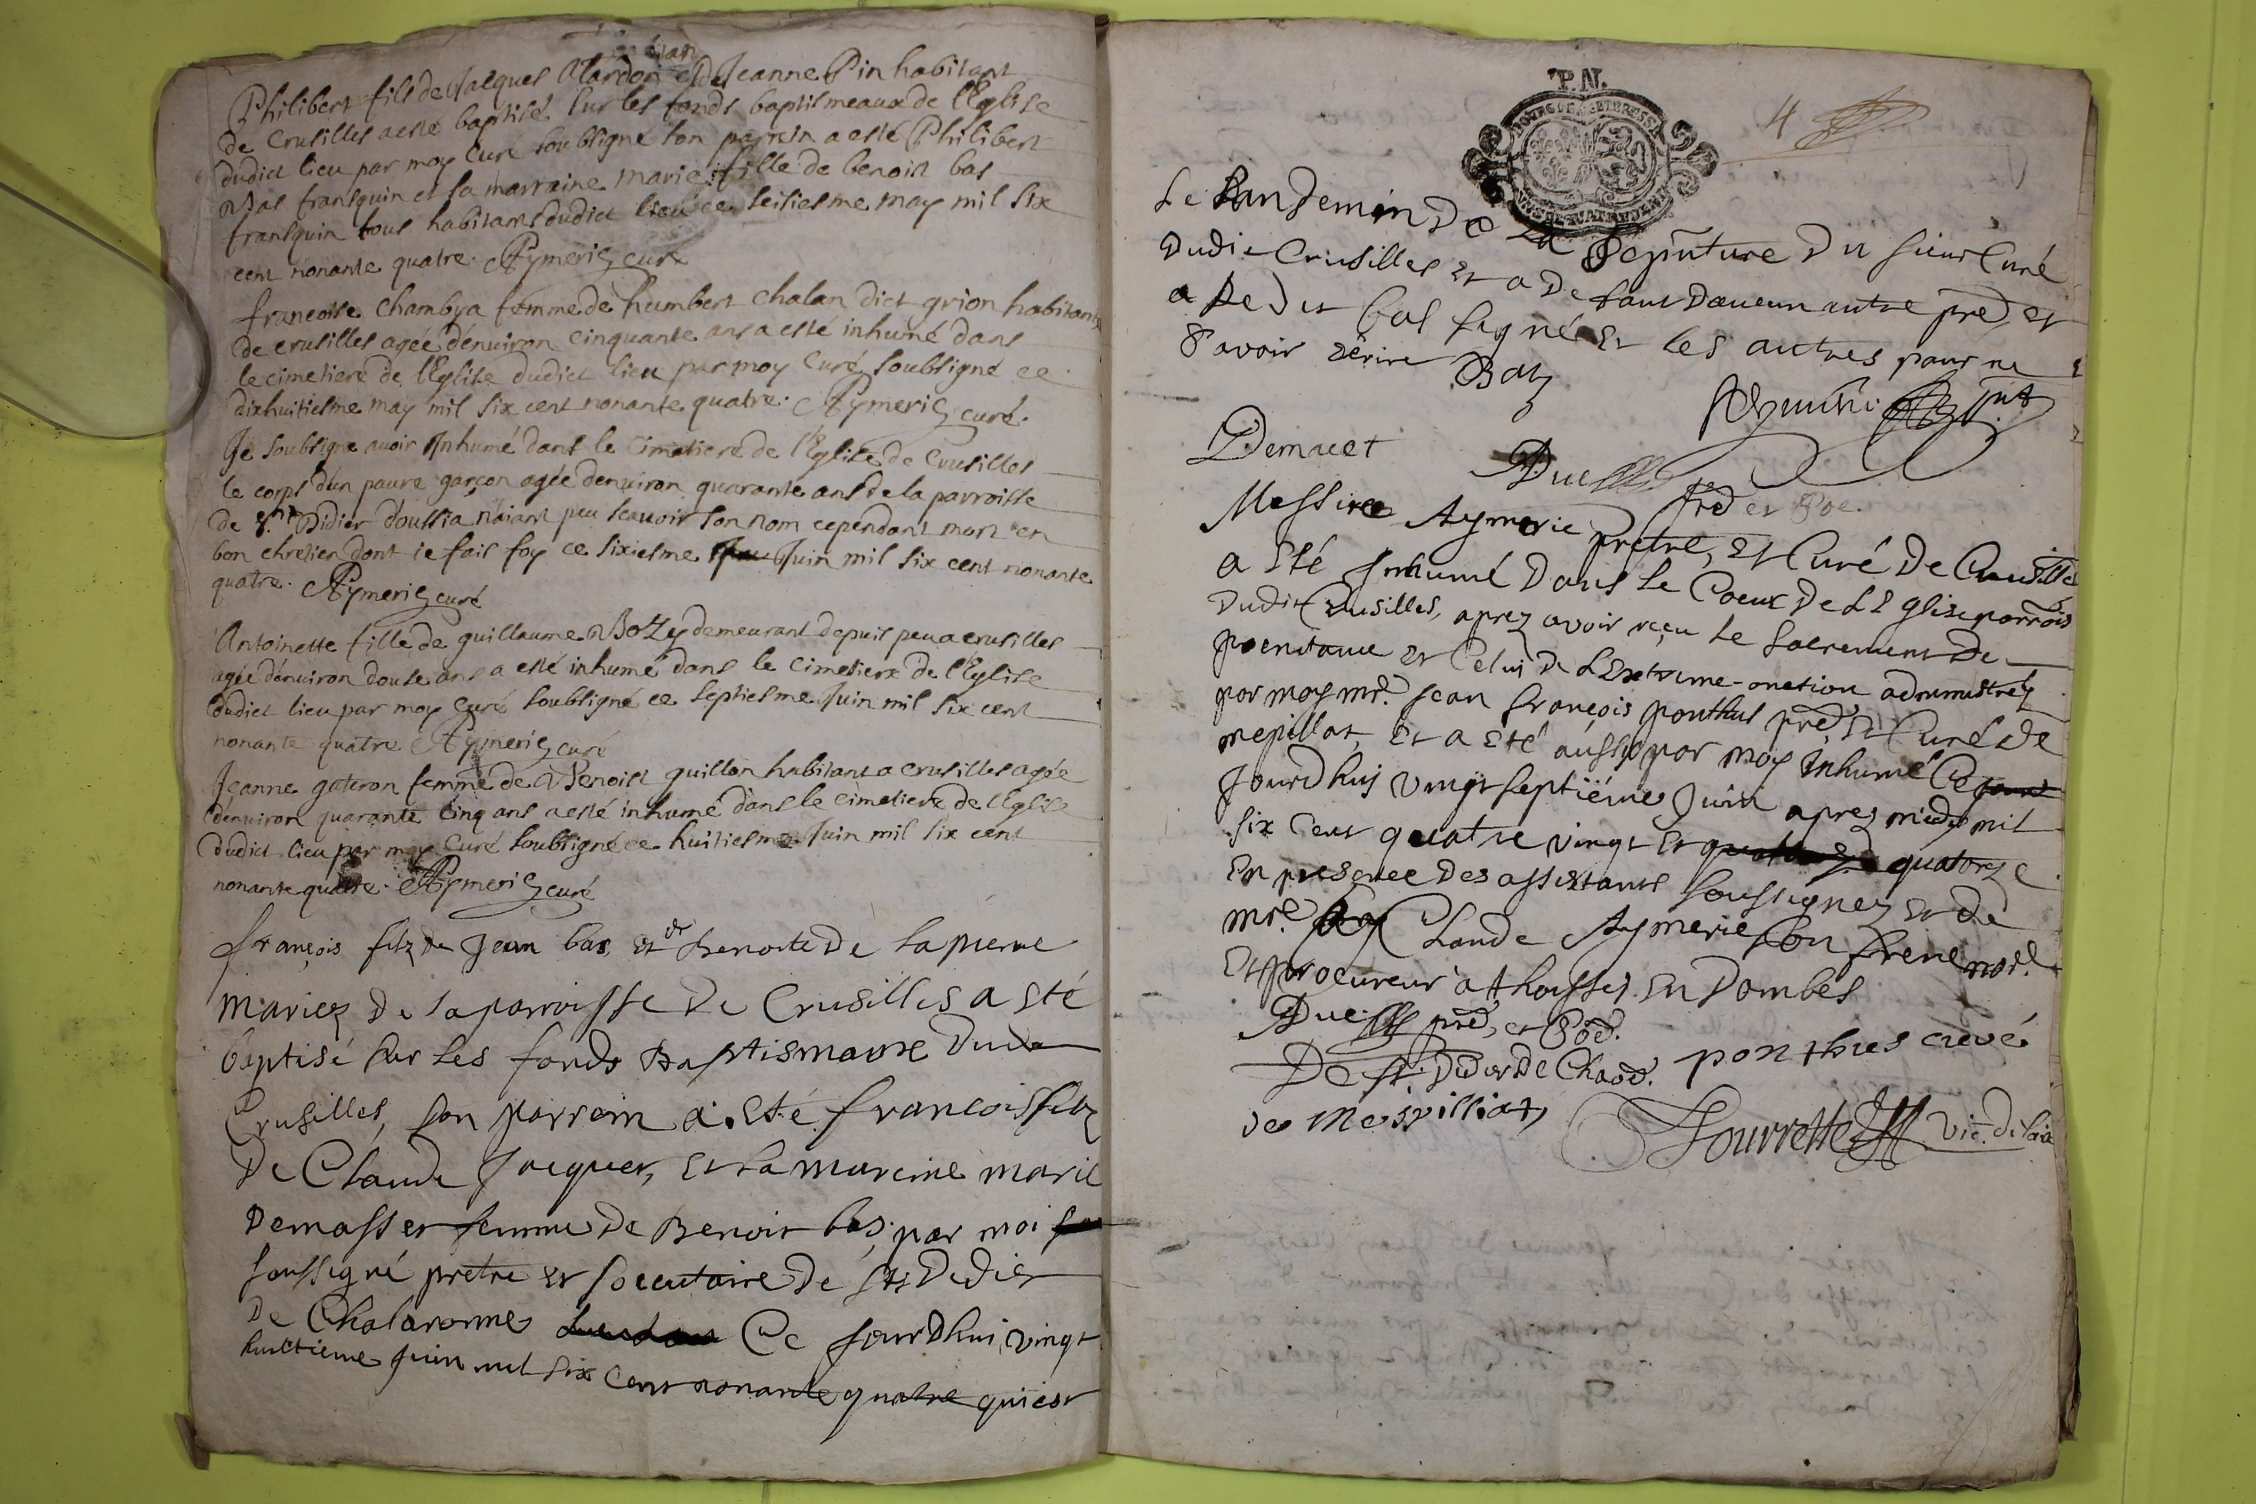 Philibert fils de Jacques Alardon et de Jeanne Pin habitant
de Crusilles a esté baptisé sur les fonds baptismeaux de l'Eglise
dudict lieu par moy Curé soubsigné son parrein a esté Philibert
bas fransquin et sa marraine marie fille de benoist bas
fransquin tous habitans dudict lieu ce seisiesme may mil six
cent nonante quatre. Aymeric curé
francoise Chambya femme de humbert chalan dict grion habitante
de crusilles agée d'enuiron cinquante ans a esté inhumé dans
le cimetiere de l'Eglise dudict lieu par moy Curé soubsigné ce
dixhuitiesme may mil six cent nonante quatre. Aymeric curé.
Je soubsigne auoir Inhumé dans le cimetiere de l'Eglise de Crusilles
le corps d'un pauvre garçon agée d'enuiron quarante ans de la parroisse
de st Didier d'oussia n'aiant peu scauoir son nom cependant mort en
bon chretien dont ie fais foy ce sixiesme Juin mil six cent nonante
quatre. Aymeric curé
Antoinette fille de guillaume demeurant depuis peu a crusilles
agée d'enuiron douse ans a esté inhumé dans le cimetiere de l'Eglise
dudict lieu par moy Curé soubsigné ce septiesme Juin mil six cent
nonante quatre Aymeric curé
Jeanne gateron femme de Benoist guillon habitant a crusilles agée
d'enuiron quarante cinq ans a esté inhumé dans le cimetiere de l'Eglise
dudict lieu par moy Curé soubsigné ce huitiesme Juin mil six cent
nonante quatre. Aymeric curé
françois filz de Jean bas et de benoite De lapierre
mariez de la parroisse de Crusilles a eté
baptisé sur les fonds Baptismaux Dudit
Crusilles, son parrein a eté francois filz
De Claude Jacquet, et la mareine marie
Demasset femme de Benoit bas, par moi
soussigné pretre et de st Didier
De Chalaronne Ce Jourdhui vingt
huictieme Juin mil six cent nonante quatre qui est
P.N.
4
Le Landemin De La Sepulture Du sieur Curé
Dudit Crusilles et a Defaut Daucun autre pre et
a Ledit bas signé Et les autres pour ne
Savoir Ecrire
Bas
Aymeric
Demacet
Duc
Messire Aymeric pretre, et Curé De Crusilles
a Eté Inhumé Dans Le Coeur De L'Eglise parrois
Dudit Crusilles, aprez avoir reçu le Sacrement De
poenitance et Celui De L'Extreme-onction administrez
par moy mre. Jean françois ponthus pre Et Curé De
mepillat, et a Eté aussy par moy Inhumé Ce
Jourdhuy vingt septiéme Juin apres midy mil
six Cent quatre vingt Et quatorze
En presence Des assistants soussignez Et de
mre. Claude Aymeric son frere not.
Et procureur a thoissey En Dombes
Duc
De st. Didier De Chaa. ponthus curé
de Mespilliat,
Tourrette vic.